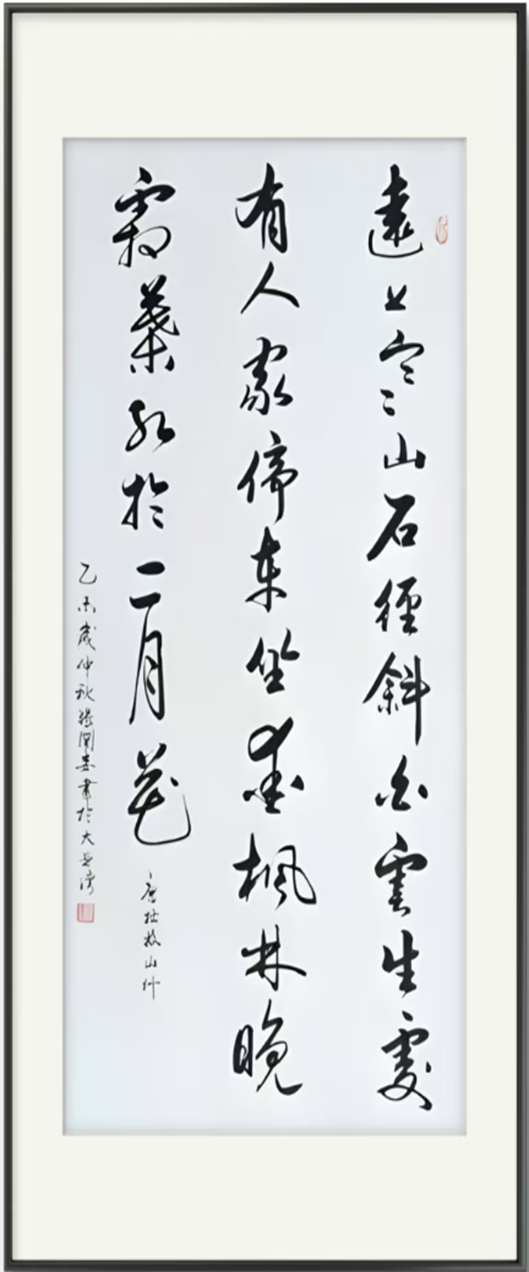 遠上寒山石徑斜白雲生處
有人家停車坐愛楓林晚
霜葉紅於二月花
唐杜牧山行
乙未歲仲秋 書於大亞灣